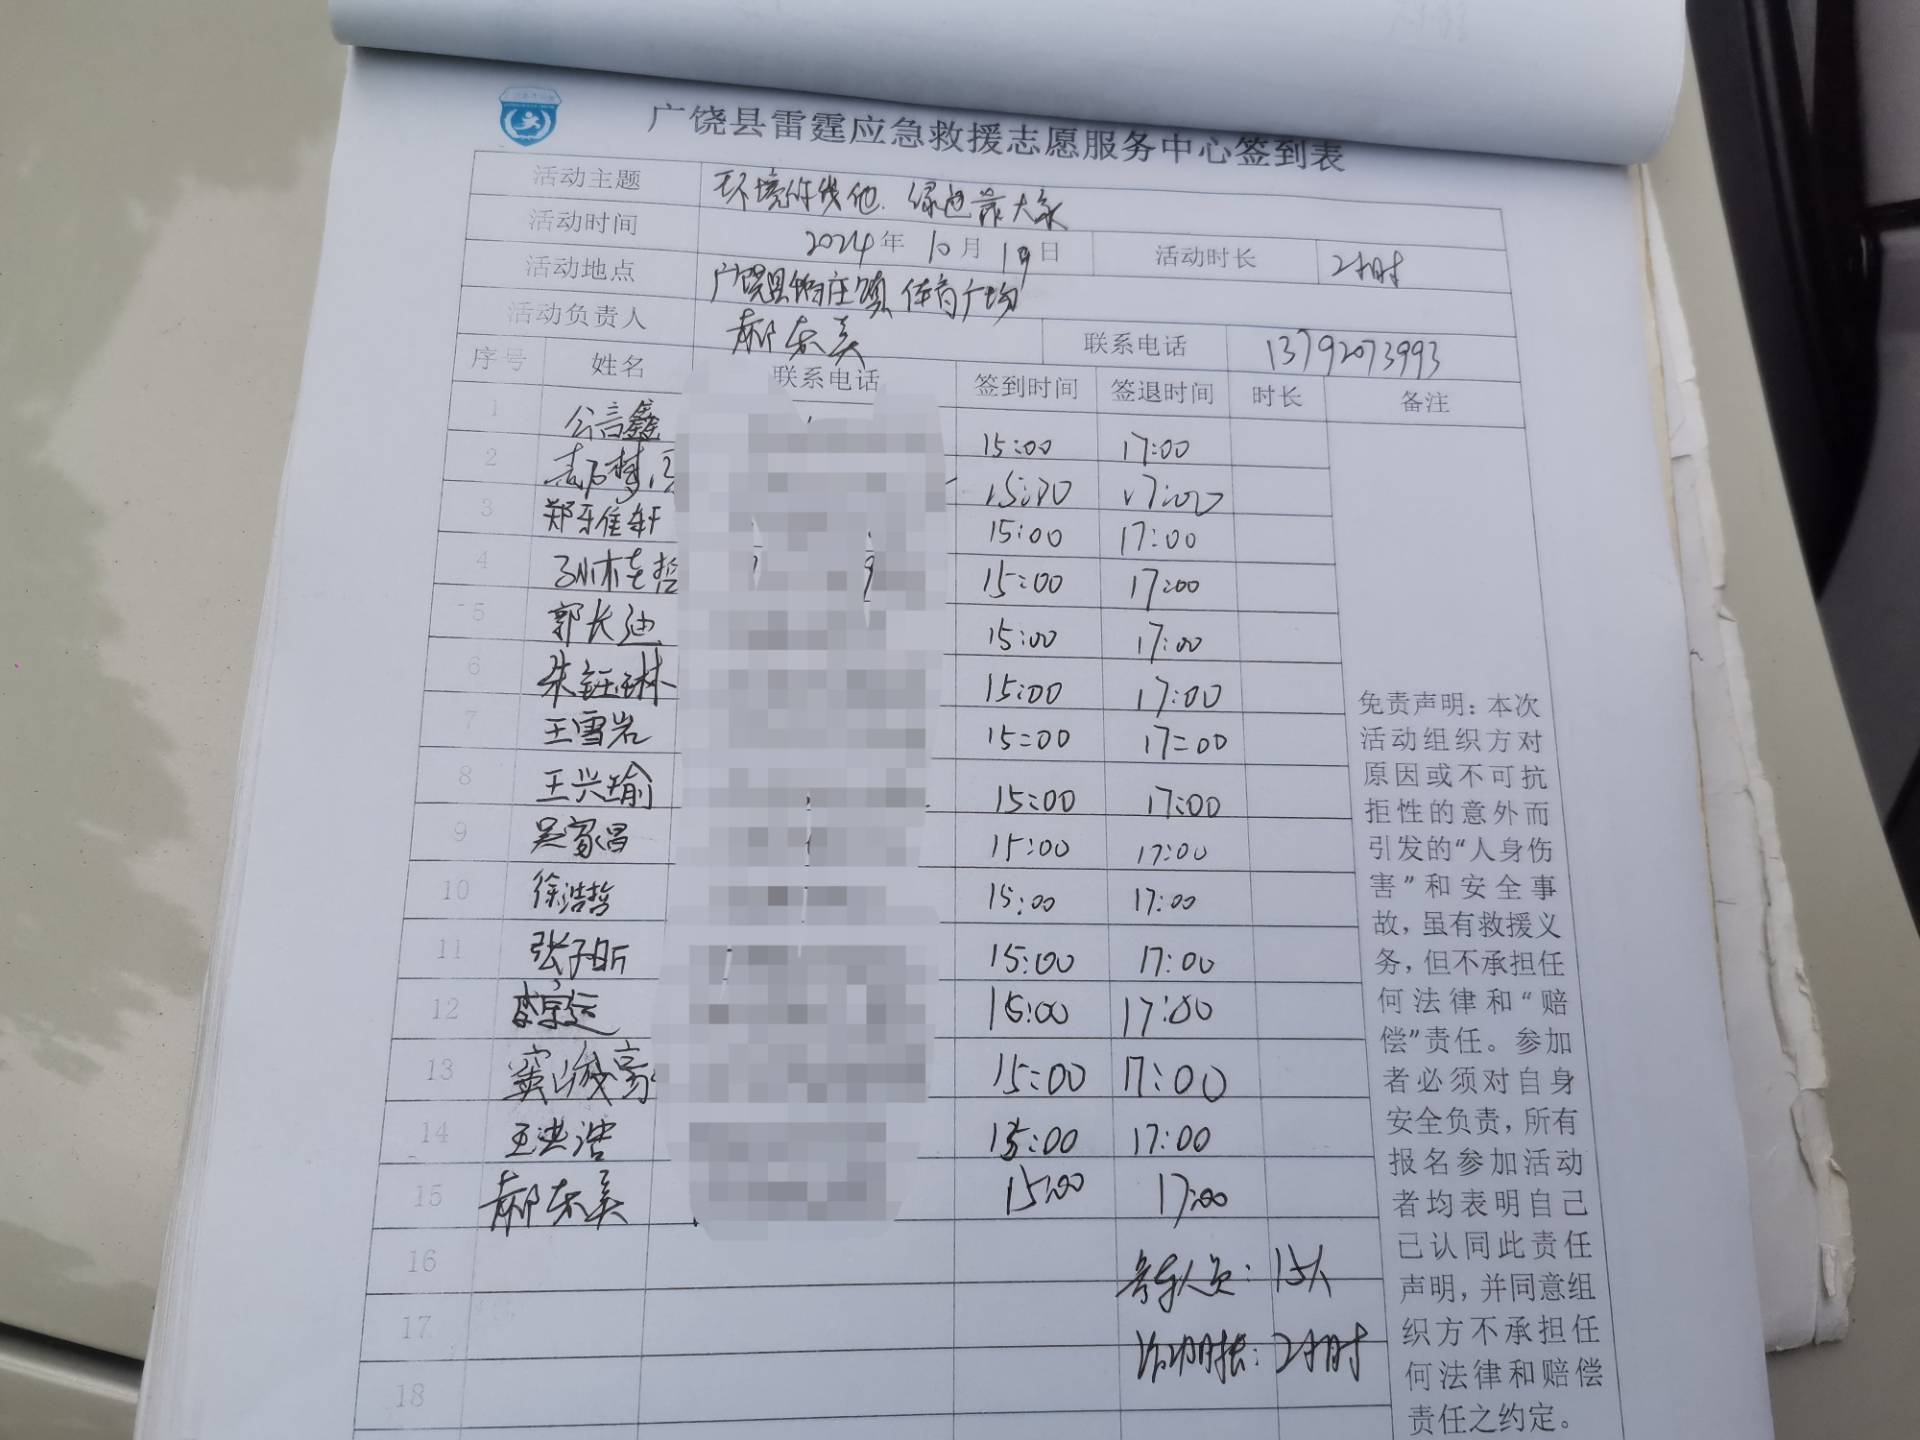 广饶县雷霆应急救援志愿服务中心签到表
活动主题 环境你我他 绿色靠大家
活动时间 2024年10月19日 活动时长 2小时
活动地点 广饶县 庄镇 体育广场
活动负责人 郝东美 联系电话 13792073993
序号 姓名 联系电话 签到时间 签退时间 时长 备注
1 公言鑫 15:00 17:00
2 郝梦 15:00 17:00
3 郑雅轩 15:00 17:00
4 桂哲 15:00 17:00
5 郭长迪 15:00 17:00
6 朱钰琳 15:00 17:00
7 王雪岩 15:00 17:00
8 王兴瑜 15:00 17:00
9 吴家昌 15:00 17:00
10 徐浩哲 15:00 17:00
11 张子昕 15:00 17:00
12 李宗运 15:00 17:00
13 窦峻豪 15:00 17:00
14 王洪浩 15:00 17:00
15 郝东美 15:00 17:00
16 参与人员: 15人
17 活动时长: 2小时
18
免责声明:本次
活动组织方对
原因或不可抗
拒性的意外而
引发的“人身伤
害”和安全事
故,虽有救援义
务,但不承担任
何法律和“赔
偿”责任。参加
者必须对自身
安全负责,所有
报名参加活动
者均表明自己
已认同此责任
声明,并同意组
织方不承担任
何法律和赔偿
责任之约定。